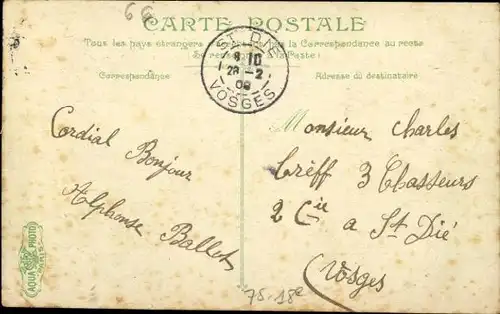 66
CARTE POSTALE
Tous les pays étrangers la Correspondance au recto
à la Poste
Correspondance
Adresse du destinataire
ST DIÉ
8 10
28 -2
08
VOSGES
Cordial Bonjour
Alphonse Ballet
Monsieur Charles
Creff 3 Chasseurs
2 Cie a St Dié
Vosges
AQUA PHOTO
PARIS
75-18e